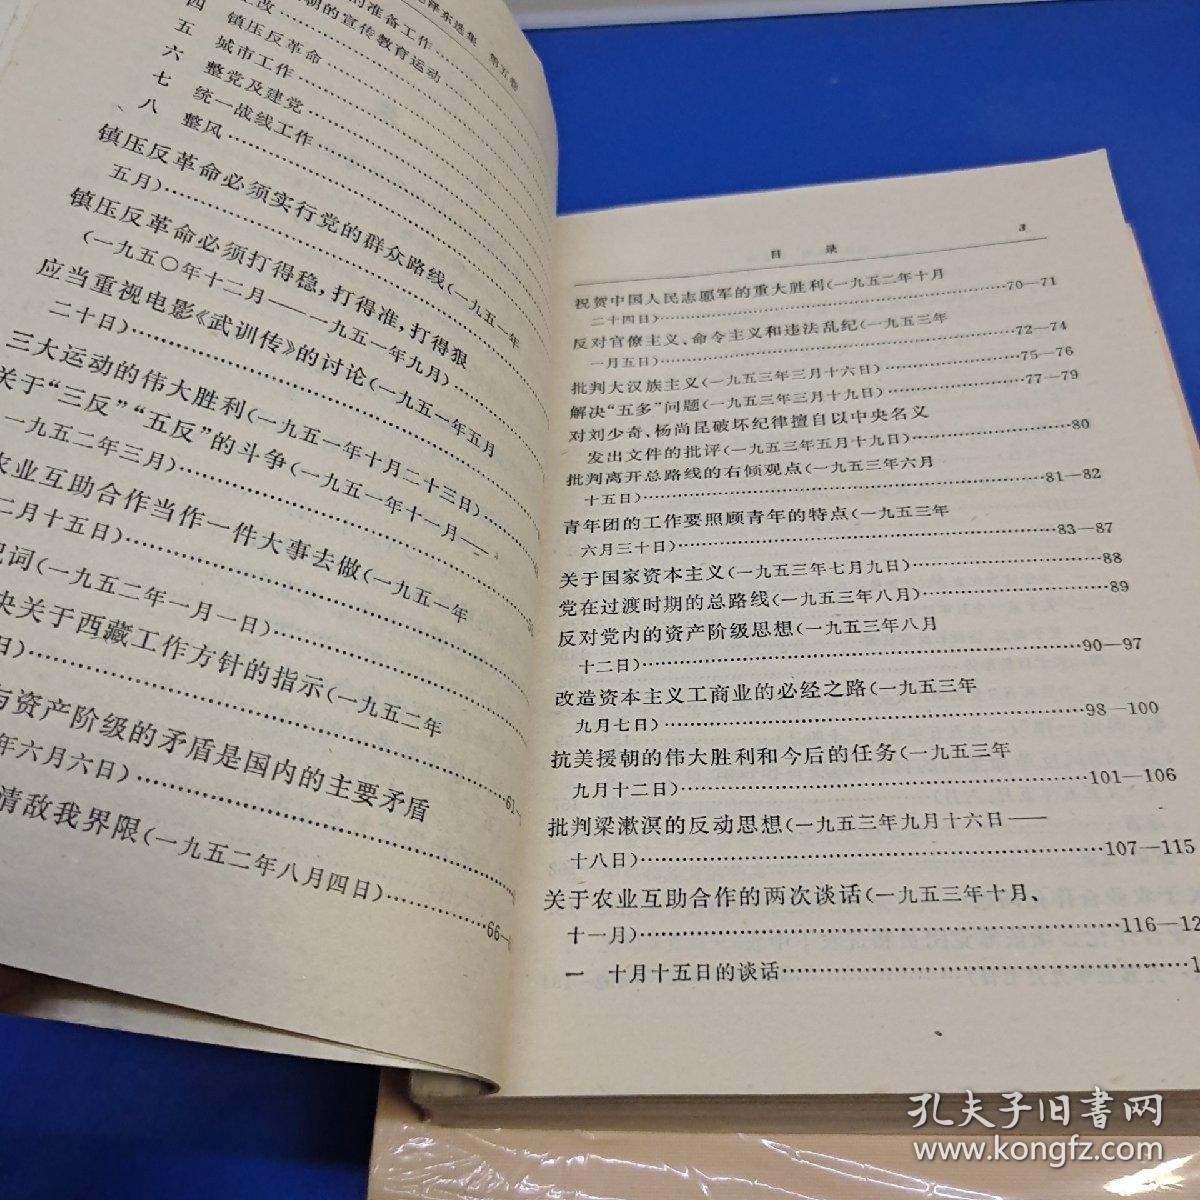 泽东选集 第五卷
的准备工作
朝的宣传教育运动
四 镇压反革命
五 城市工作
六 整党及建党
七 统一战线工作
八 整风
镇压反革命必须实行党的群众路线(一九五一年
五月)
镇压反革命必须打得稳,打得准,打得狠
(一九五〇年十二月——一九五一年九月)
应当重视电影《武训传》的讨论(一九五一年五月
二十日)
三大运动的伟大胜利(一九五一年十月二十三日)
关于“三反”“五反”的斗争(一九五一年十一月——
一九五二年三月)
农业互助合作当作一件大事去做(一九五一年
二月十五日)
词(一九五二年一月一日)
关于西藏工作方针的指示(一九五二年
日)
与资产阶级的矛盾是国内的主要矛盾
年六月六日)
清敌我界限(一九五二年八月四日)
目 录 3
祝贺中国人民志愿军的重大胜利(一九五二年十月
二十四日)……70—71
反对官僚主义、命令主义和违法乱纪(一九五三年
一月五日)……72—74
批判大汉族主义(一九五三年三月十六日)……75—76
解决“五多”问题(一九五三年三月十九日)……77—79
对刘少奇、杨尚昆破坏纪律擅自以中央名义
发出文件的批评(一九五三年五月十九日)……80
批判离开总路线的右倾观点(一九五三年六月
十五日)……81—82
青年团的工作要照顾青年的特点(一九五三年
六月三十日)……83—87
关于国家资本主义(一九五三年七月九日)……88
党在过渡时期的总路线(一九五三年八月)……89
反对党内的资产阶级思想(一九五三年八月
十二日)……90—97
改造资本主义工商业的必经之路(一九五三年
九月七日)……98—100
抗美援朝的伟大胜利和今后的任务(一九五三年
九月十二日)……101—106
批判梁漱溟的反动思想(一九五三年九月十六日——
十八日)……107—115
关于农业互助合作的两次谈话(一九五三年十月、
十一月)……116—12
一 十月十五日的谈话……1
孔夫子旧书网
www.kongfz.com